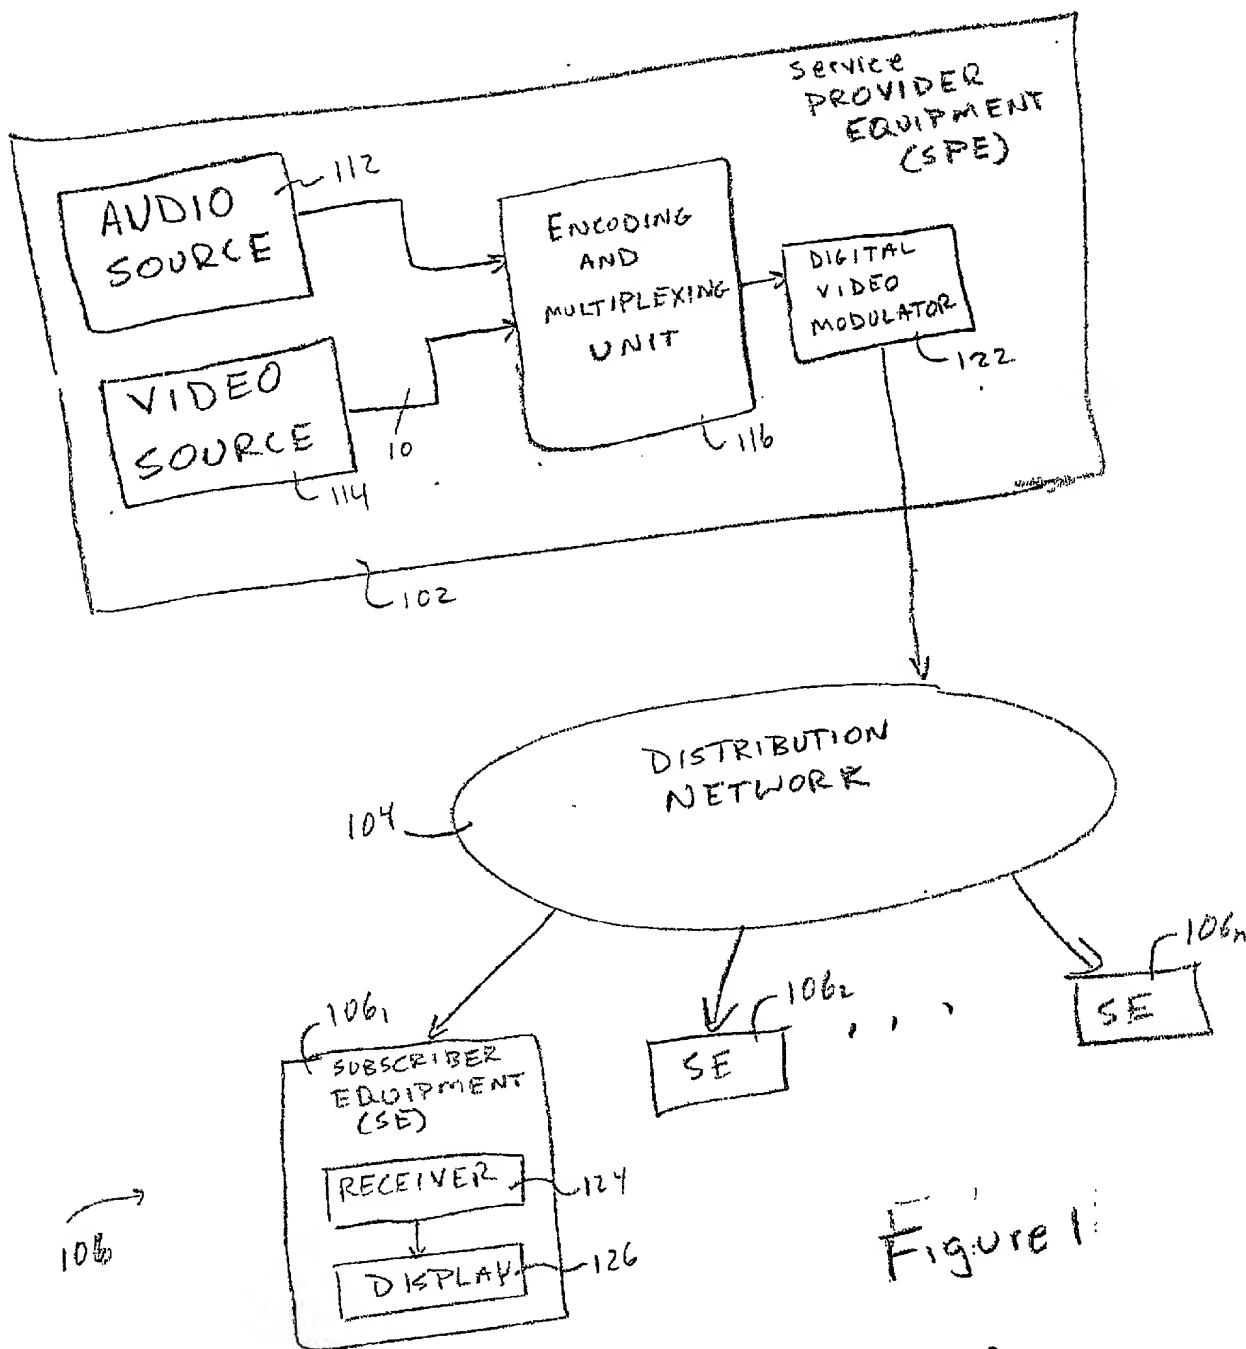 Service
PROVIDER
EQUIPMENT
(SPE)
AUDIO
SOURCE
112
VIDEO
SOURCE
114
10
ENCODING
AND
MULTIPLEXING
UNIT
116
DIGITAL
VIDEO
MODULATOR
122
102
DISTRIBUTION
NETWORK
104
106₁
SUBSCRIBER
EQUIPMENT
(SE)
RECEIVER
124
DISPLAY
126
106₂
SE
106ₙ
SE
106
Figure 1